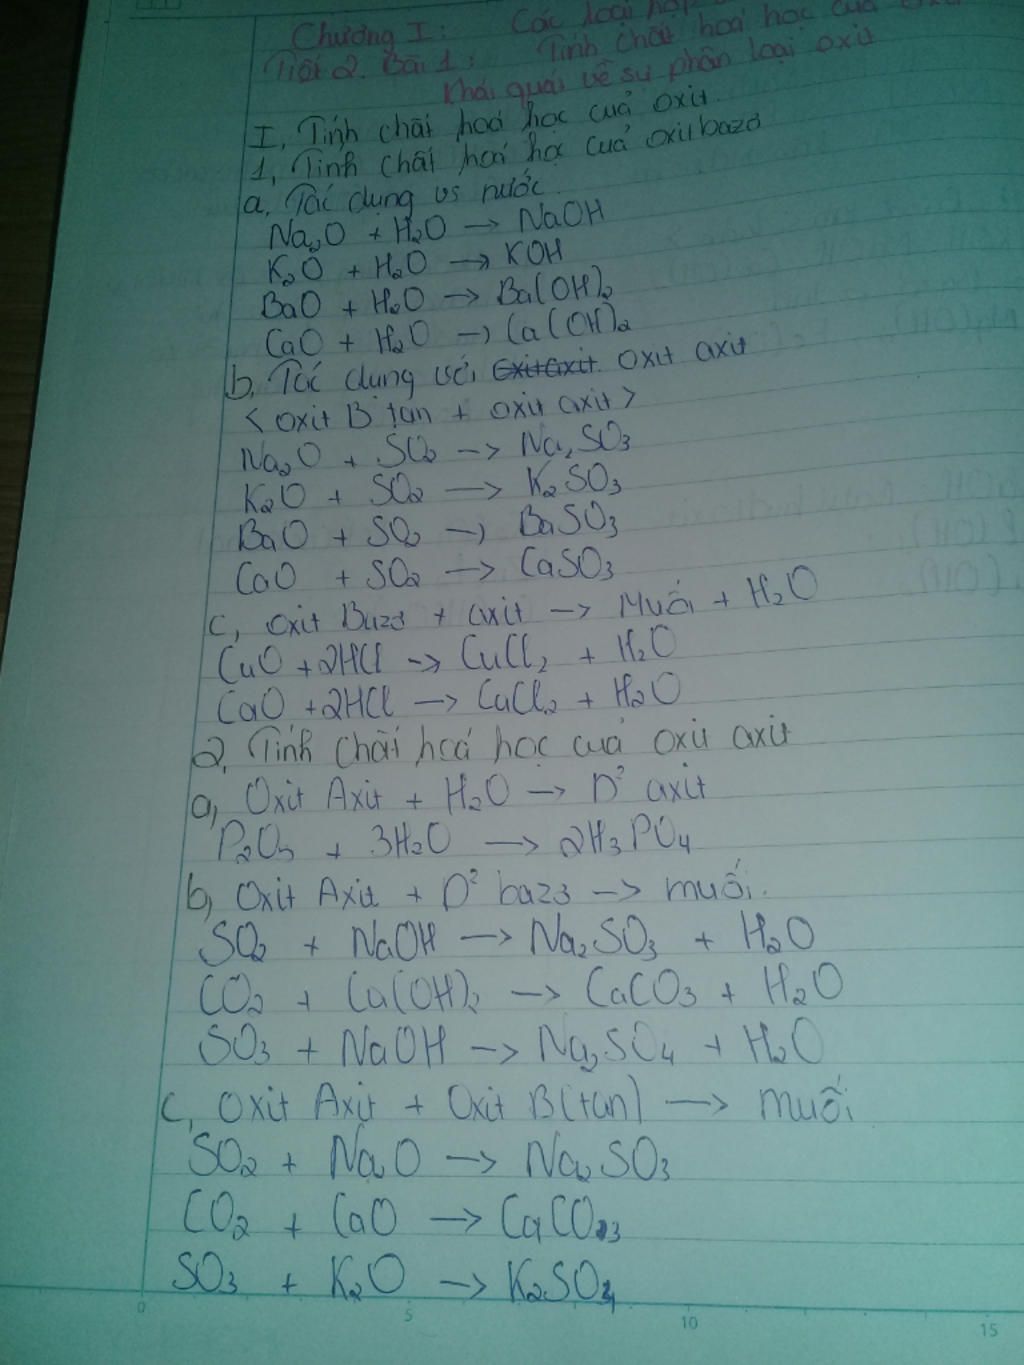 Chương I: Các loại hợp
Tiết 2. Bài 1: Tính chất hoá học của
Khái quát về sự phân loại oxit
I, Tính chất hoá học cuả oxit
1, Tính chất hoá học cuả oxit bazơ
a, Tác dụng vs nước
Na₂O + H₂O → NaOH
K₂O + H₂O → KOH
BaO + H₂O → Ba(OH)₂
CaO + H₂O → Ca(OH)₂
b, Tác dụng với oxit axit oxit axit
< oxit B tan + oxit axit >
Na₂O + SO₂ → Na₂SO₃
K₂O + SO₂ → K₂SO₃
BaO + SO₂ → BaSO₃
CaO + SO₂ → CaSO₃
c, oxit Bazơ + axit → Muối + H₂O
CuO + 2HCl → CuCl₂ + H₂O
CaO + 2HCl → CaCl₂ + H₂O
2, Tính chất hoá học cuả oxit axit
a, Oxit Axit + H₂O → D² axit
P₂O₅ + 3H₂O → 2H₃PO₄
b, Oxit Axit + D² bazơ → muối.
SO₂ + NaOH → Na₂SO₃ + H₂O
CO₂ + Ca(OH)₂ → CaCO₃ + H₂O
SO₃ + NaOH → Na₂SO₄ + H₂O
c, Oxit Axit + Oxit B(tan) → muối
SO₂ + Na₂O → Na₂SO₃
CO₂ + CaO → CaCO₃
SO₃ + K₂O → K₂SO₄
0 5 10 15